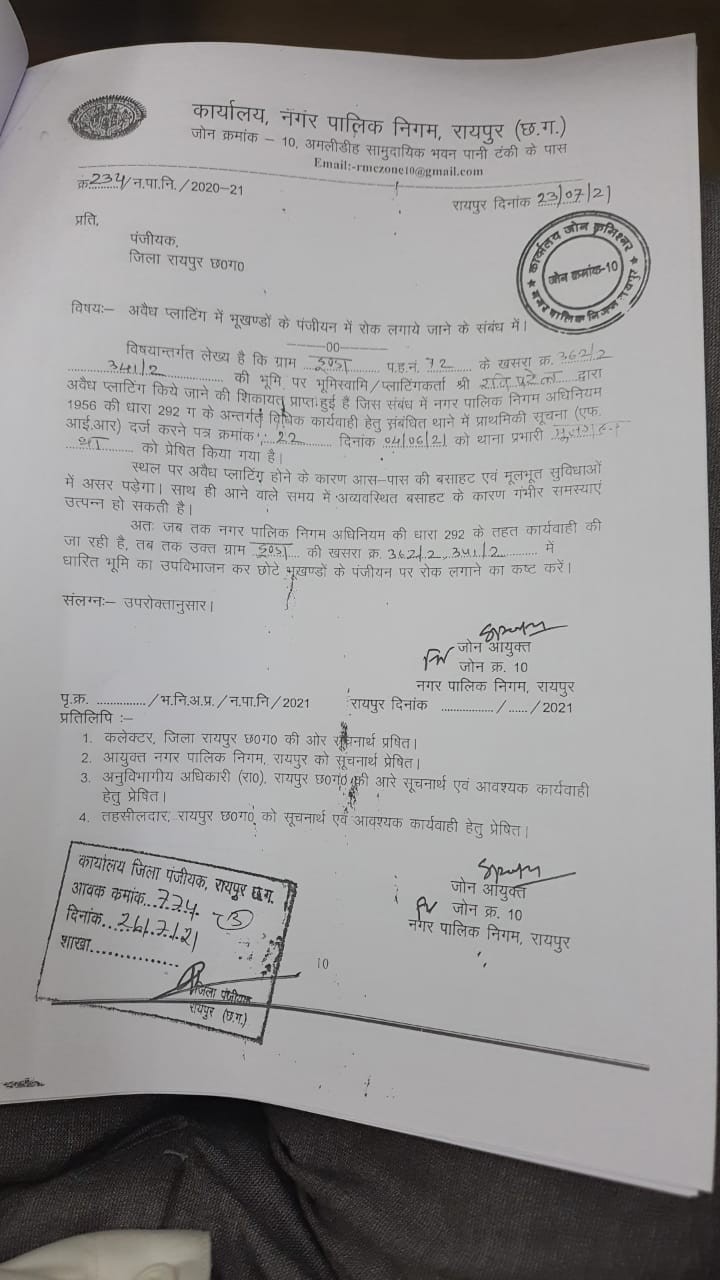 कार्यालय, नगर पालिक निगम, रायपुर (छ.ग.)
जोन क्रमांक – 10, अमलीडीह सामुदायिक भवन पानी टंकी के पास
Email:-rmczone10@gmail.com
क्र234/न.पा.नि./2020-21
रायपुर दिनांक 23/07/21
प्रति,
पंजीयक,
जिला रायपुर छ0ग0
कार्यालय जोन कमिश्नर
जोन क्रमांक-10
नगर पालिक निगम रायपुर
विषयः– अवैध प्लाटिंग में भूखण्डों के पंजीयन में रोक लगाये जाने के संबंध में।
——00——
विषयान्तर्गत लेख्य है कि ग्राम डूण्डा प.ह.नं. 72 के खसरा क्र. 362/2
341/2 की भूमि पर भूमिस्वामि/प्लाटिंगकर्ता श्री रवि पटेल द्वारा
अवैध प्लाटिंग किये जाने की शिकायत प्राप्त हुई है जिस संबंध में नगर पालिक निगम अधिनियम
1956 की धारा 292 ग के अन्तर्गत विधिक कार्यवाही हेतु संबंधित थाने में प्राथमिकी सूचना (एफ.
आई.आर) दर्ज करने पत्र क्रमांक 22 दिनांक 04/06/21 को थाना प्रभारी
को प्रेषित किया गया है।
स्थल पर अवैध प्लाटिंग होने के कारण आस-पास की बसाहट एवं मूलभूत सुविधाओं
में असर पड़ेगा। साथ ही आने वाले समय में अव्यवस्थित बसाहट के कारण गंभीर समस्याएं
उत्पन्न हो सकती है।
अतः जब तक नगर पालिक निगम अधिनियम की धारा 292 के तहत कार्यवाही की
जा रही है, तब तक उक्त ग्राम डूण्डा की खसरा क्र. 362/2, 341/2 में
धारित भूमि का उपविभाजन कर छोटे भूखण्डों के पंजीयन पर रोक लगाने का कष्ट करें।
संलग्नः– उपरोक्तानुसार।
जोन आयुक्त
जोन क्र. 10
नगर पालिक निगम, रायपुर
पृ.क्र. ............../भ.नि.अ.प्र./न.पा.नि/2021 रायपुर दिनांक ................/....../2021
प्रतिलिपि :–
1. कलेक्टर, जिला रायपुर छ0ग0 की ओर सूचनार्थ प्रषित।
2. आयुक्त नगर पालिक निगम, रायपुर को सूचनार्थ प्रेषित।
3. अनुविभागीय अधिकारी (रा0), रायपुर छ0ग0 की आरे सूचनार्थ एवं आवश्यक कार्यवाही
हेतु प्रेषित।
4. तहसीलदार, रायपुर छ0ग0 को सूचनार्थ एवं आवश्यक कार्यवाही हेतु प्रेषित।
जोन आयुक्त
जोन क्र. 10
नगर पालिक निगम, रायपुर
कार्यालय जिला पंजीयक, रायपुर छ.ग.
आवक कमांक...774
दिनांक...26/7/21
शाखा...............
जिला पंजीयक
रायपुर (छ.ग.)
10